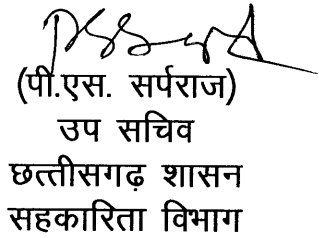 (पी.एस. सर्पराज)
उप सचिव
छत्तीसगढ़ शासन
सहकारिता विभाग